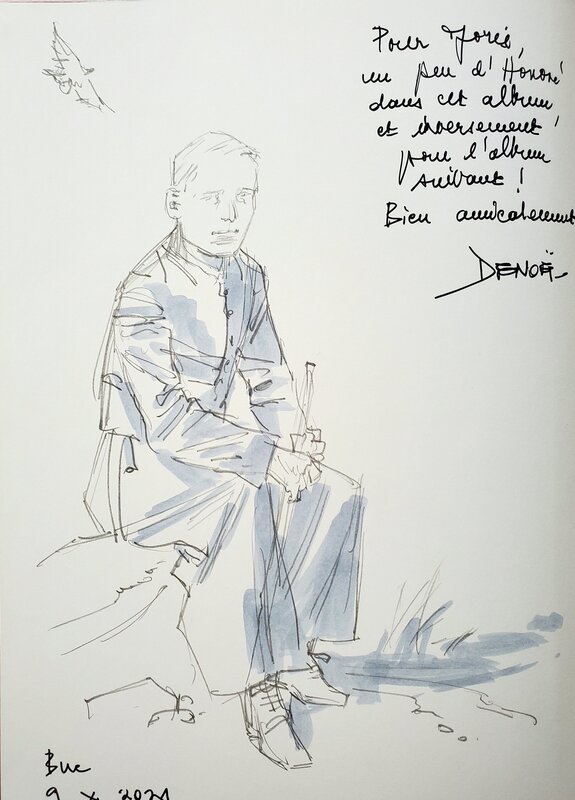 Pour Joris,
un peu d'Honoré
dans cet album
et inversement
pour l'album
suivant !
Bien amicalement
DENOËL
Buc
9 X 2021